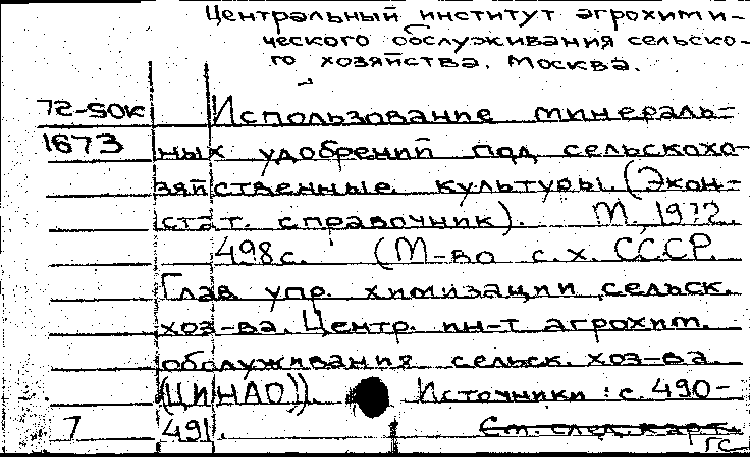 Центральный институт агрохими-
ческого обслуживания сельско-
го хозяйства. Москва.
72-50к Использование минераль-
1673 ных удобрений под сельскохо-
зяйственные культуры. (Экон-
стат. справочник). М. 1972.
498с. (М-во с.х. СССР.
Глав упр. химизации сельск.
хоз-ва. Центр. ин-т агрохим.
обслуживания сельск. хоз-ва.
(ЦИНАО)). Источники: с. 490-
7 491. См. след. карт.
ГС